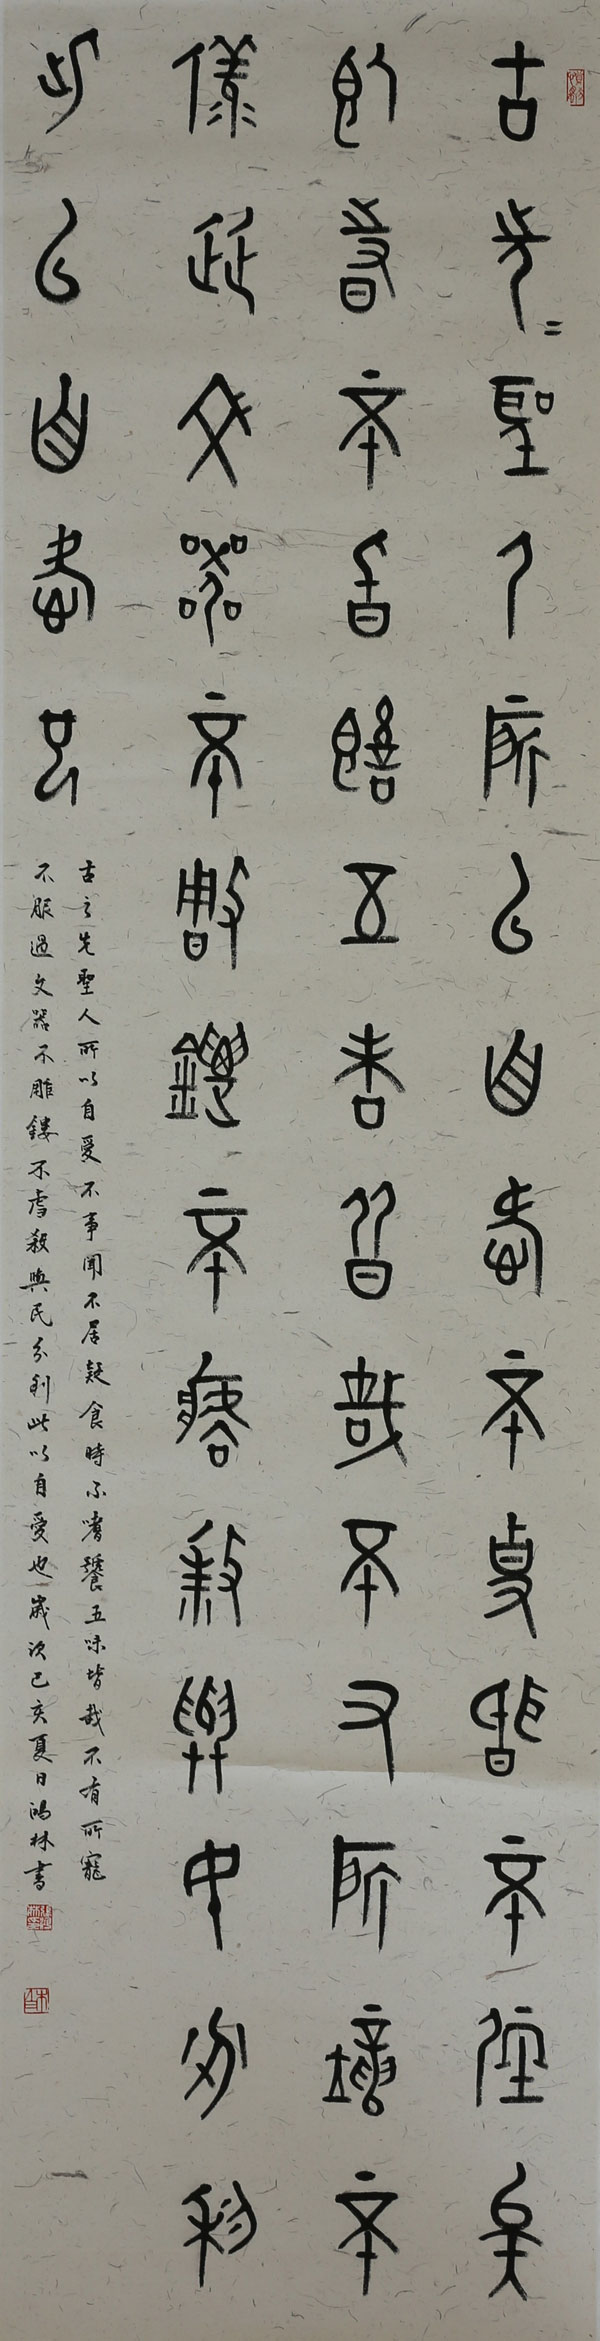 古先=聖人所以自愛不事聞不居疑
食時不嗜饌五味皆哉不有所寵不
服過文器不雕鏤不虐殺與民分利
此以自愛也
古之先聖人所以自愛不事聞不居疑食時不嗜饌五味皆哉不有所寵
不服過文器不雕鏤不虐殺與民分利此以自愛也歲次己亥夏日鴻林書